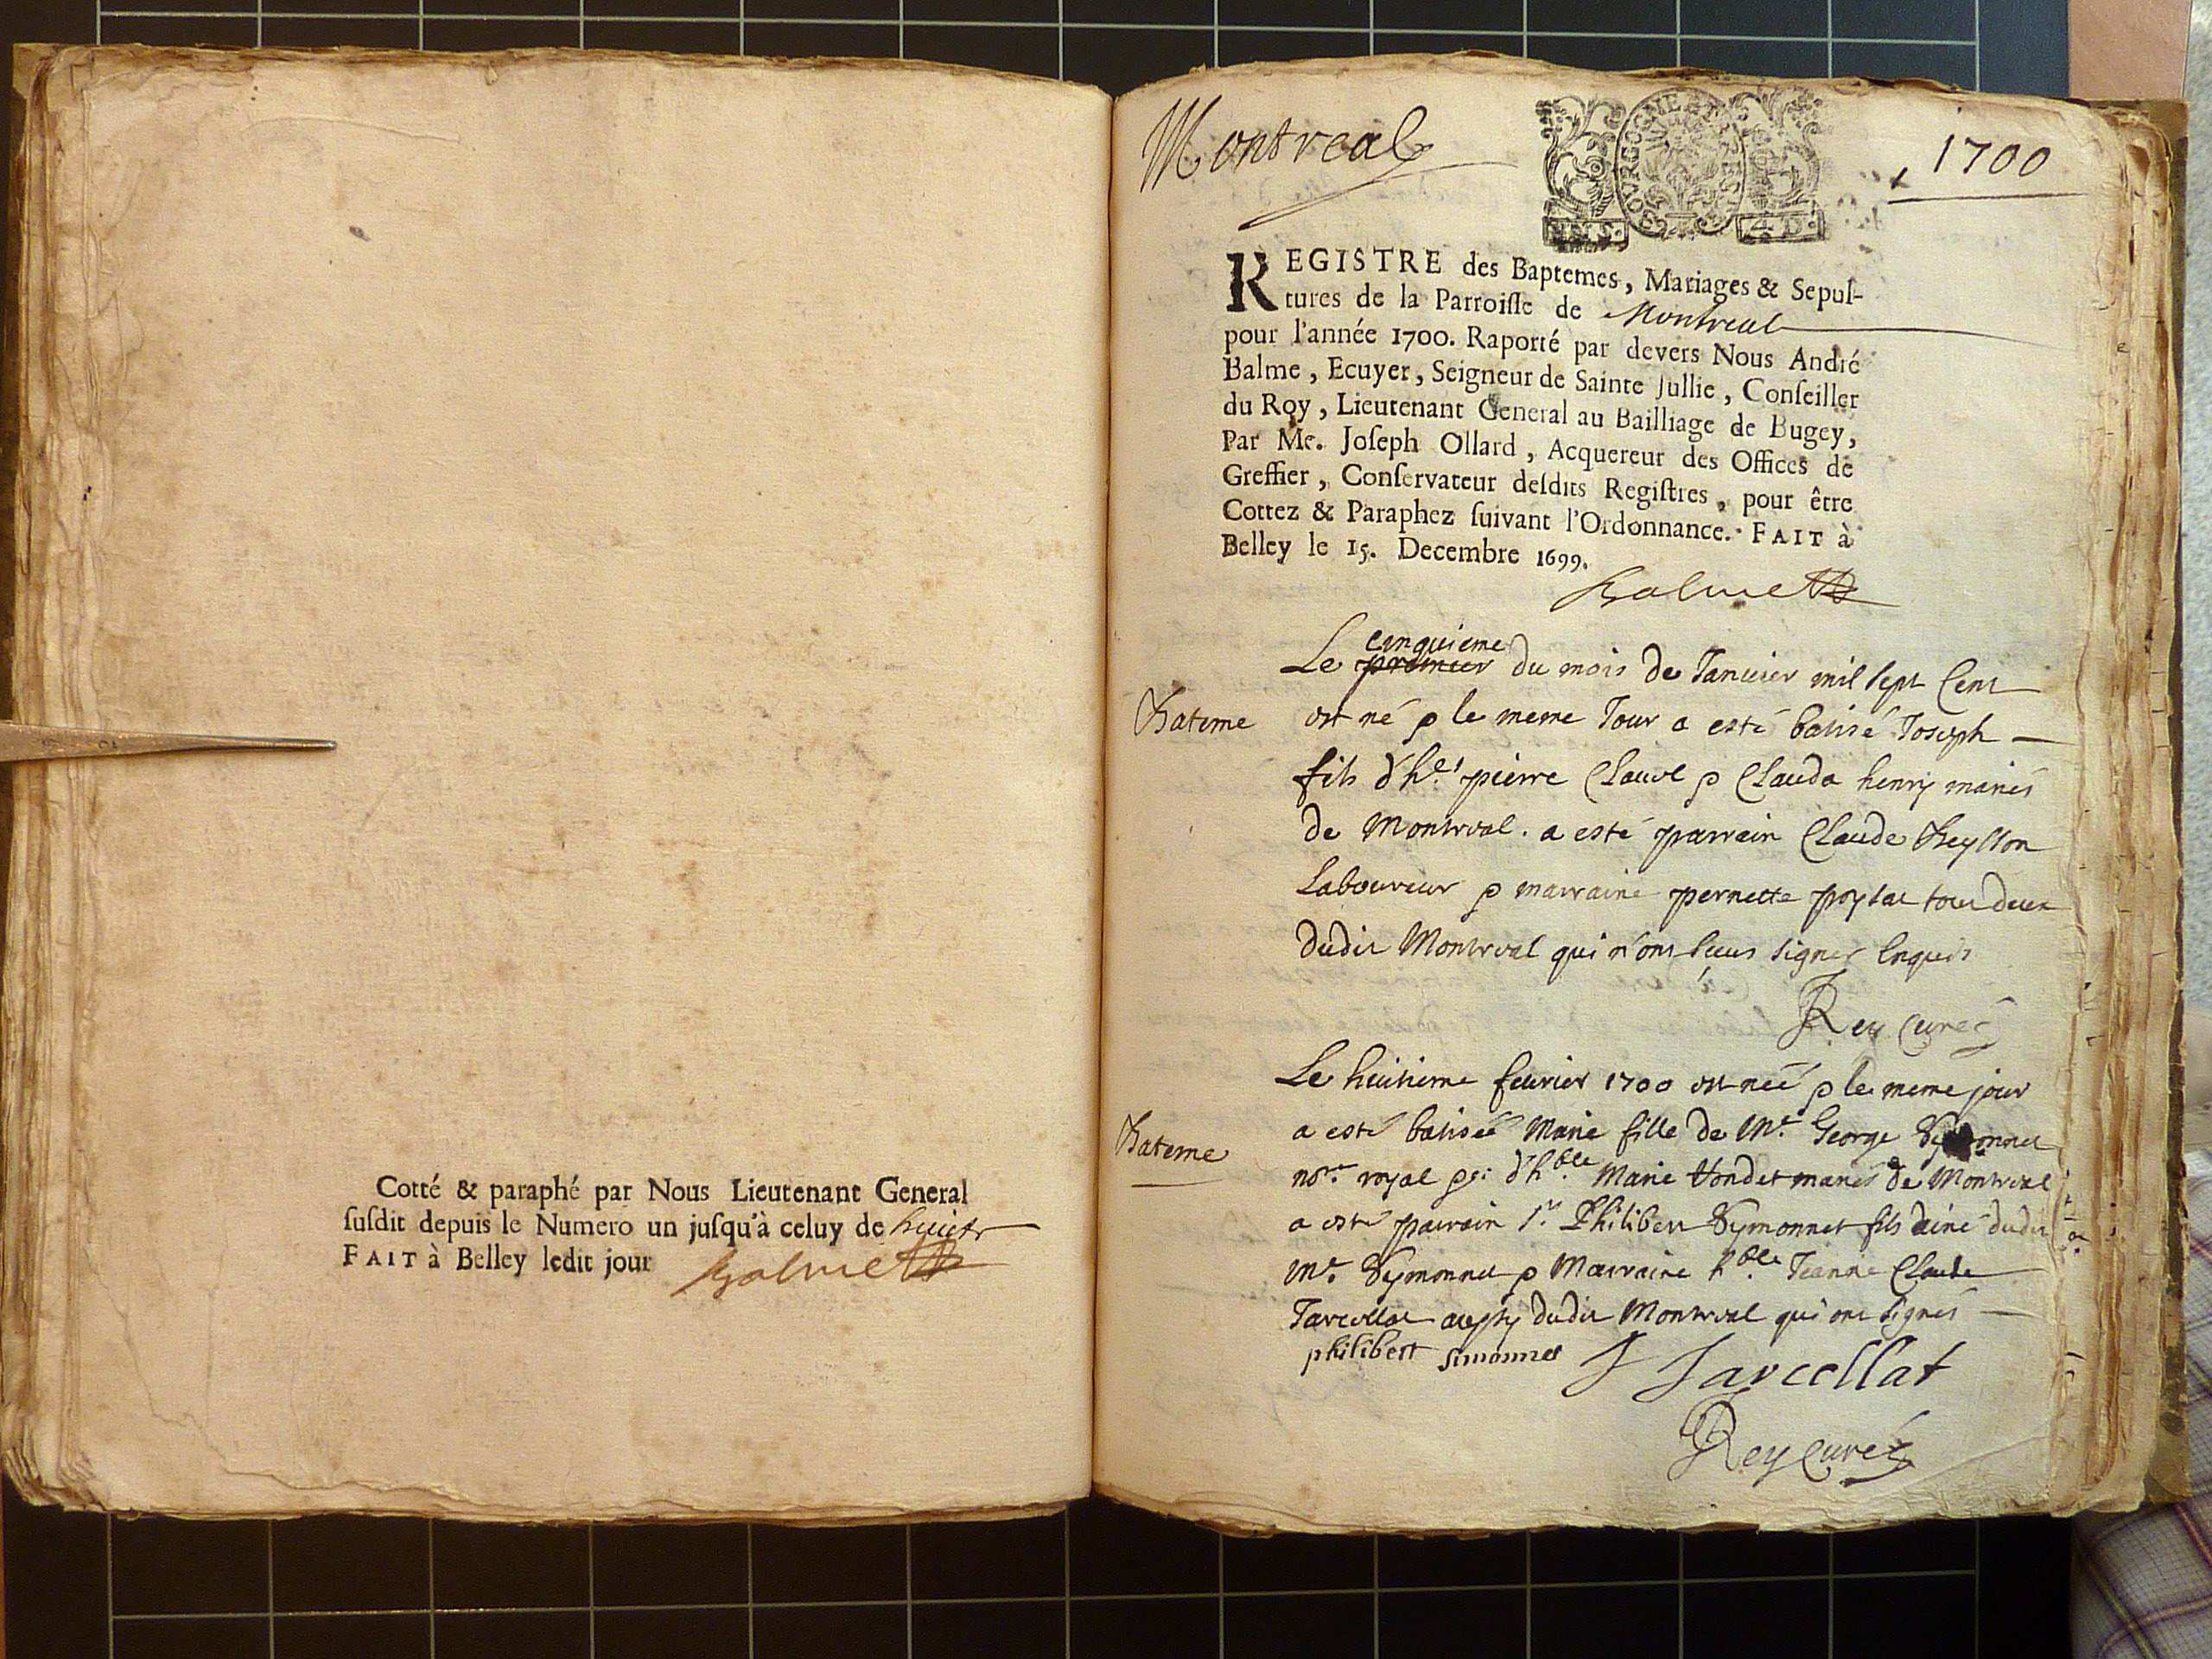 Cotté & paraphé par Nous Lieutenant General
ſuſdit depuis le Numero un juſqu'à celuy de huict
FAIT à Belley ledit jour Balme
Montreal
BOVRGOGNE ET
4 D.
1700
REGISTRE des Baptemes, Mariages & Sepul-
tures de la Parroiſſe de Montreal
pour l'année 1700. Raporté par devers Nous André
Balme, Ecuyer, Seigneur de Sainte Jullie, Conſeiller
du Roy, Lieutenant General au Bailliage de Bugey,
Par Me. Joſeph Ollard, Acquereur des Offices de
Greffier, Conſervateur deſdits Regiſtres, pour être
Cottez & Paraphez ſuivant l'Ordonnance. FAIT à
Belley le 15. Decembre 1699.
Balme
cinquieme
Le premier du mois de Januier mil sept Cent
Bateme
est né & le meme Jour a esté batisé Joseph
fils d'h.e pierre Claude & Clauda henry mariés
de Montreal. a esté parrain Claude
Laboureur & marraine pernette tous deux
dudit Montreal qui n'ont sceus signer Enquis
Rey Curé
Le huitieme feurier 1700 est née & le meme jour
Bateme
a esté batisée Marie fille de Me. George Symonnet
no.re royal & d'h.ble Marie Vondet mariés de Montreal
a esté parrain Sr. Philibert Symonnet fils ainé dudit
Me. Symonnet & Marraine h.ble Jeanne Claude
Jarcellat aussy dudit Montreal qui ont signés
philibert simonnet J Jarcellat
Rey Curé